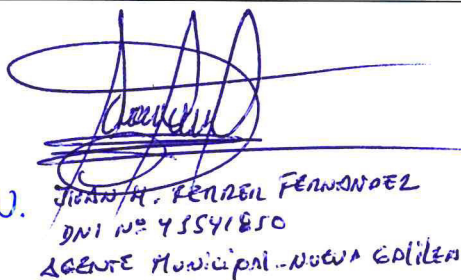 JUAN H. FERRER FERNANDEZ
DNI Nº 43541850
AGENTE MUNICIPAL - NUEVA GALILEA